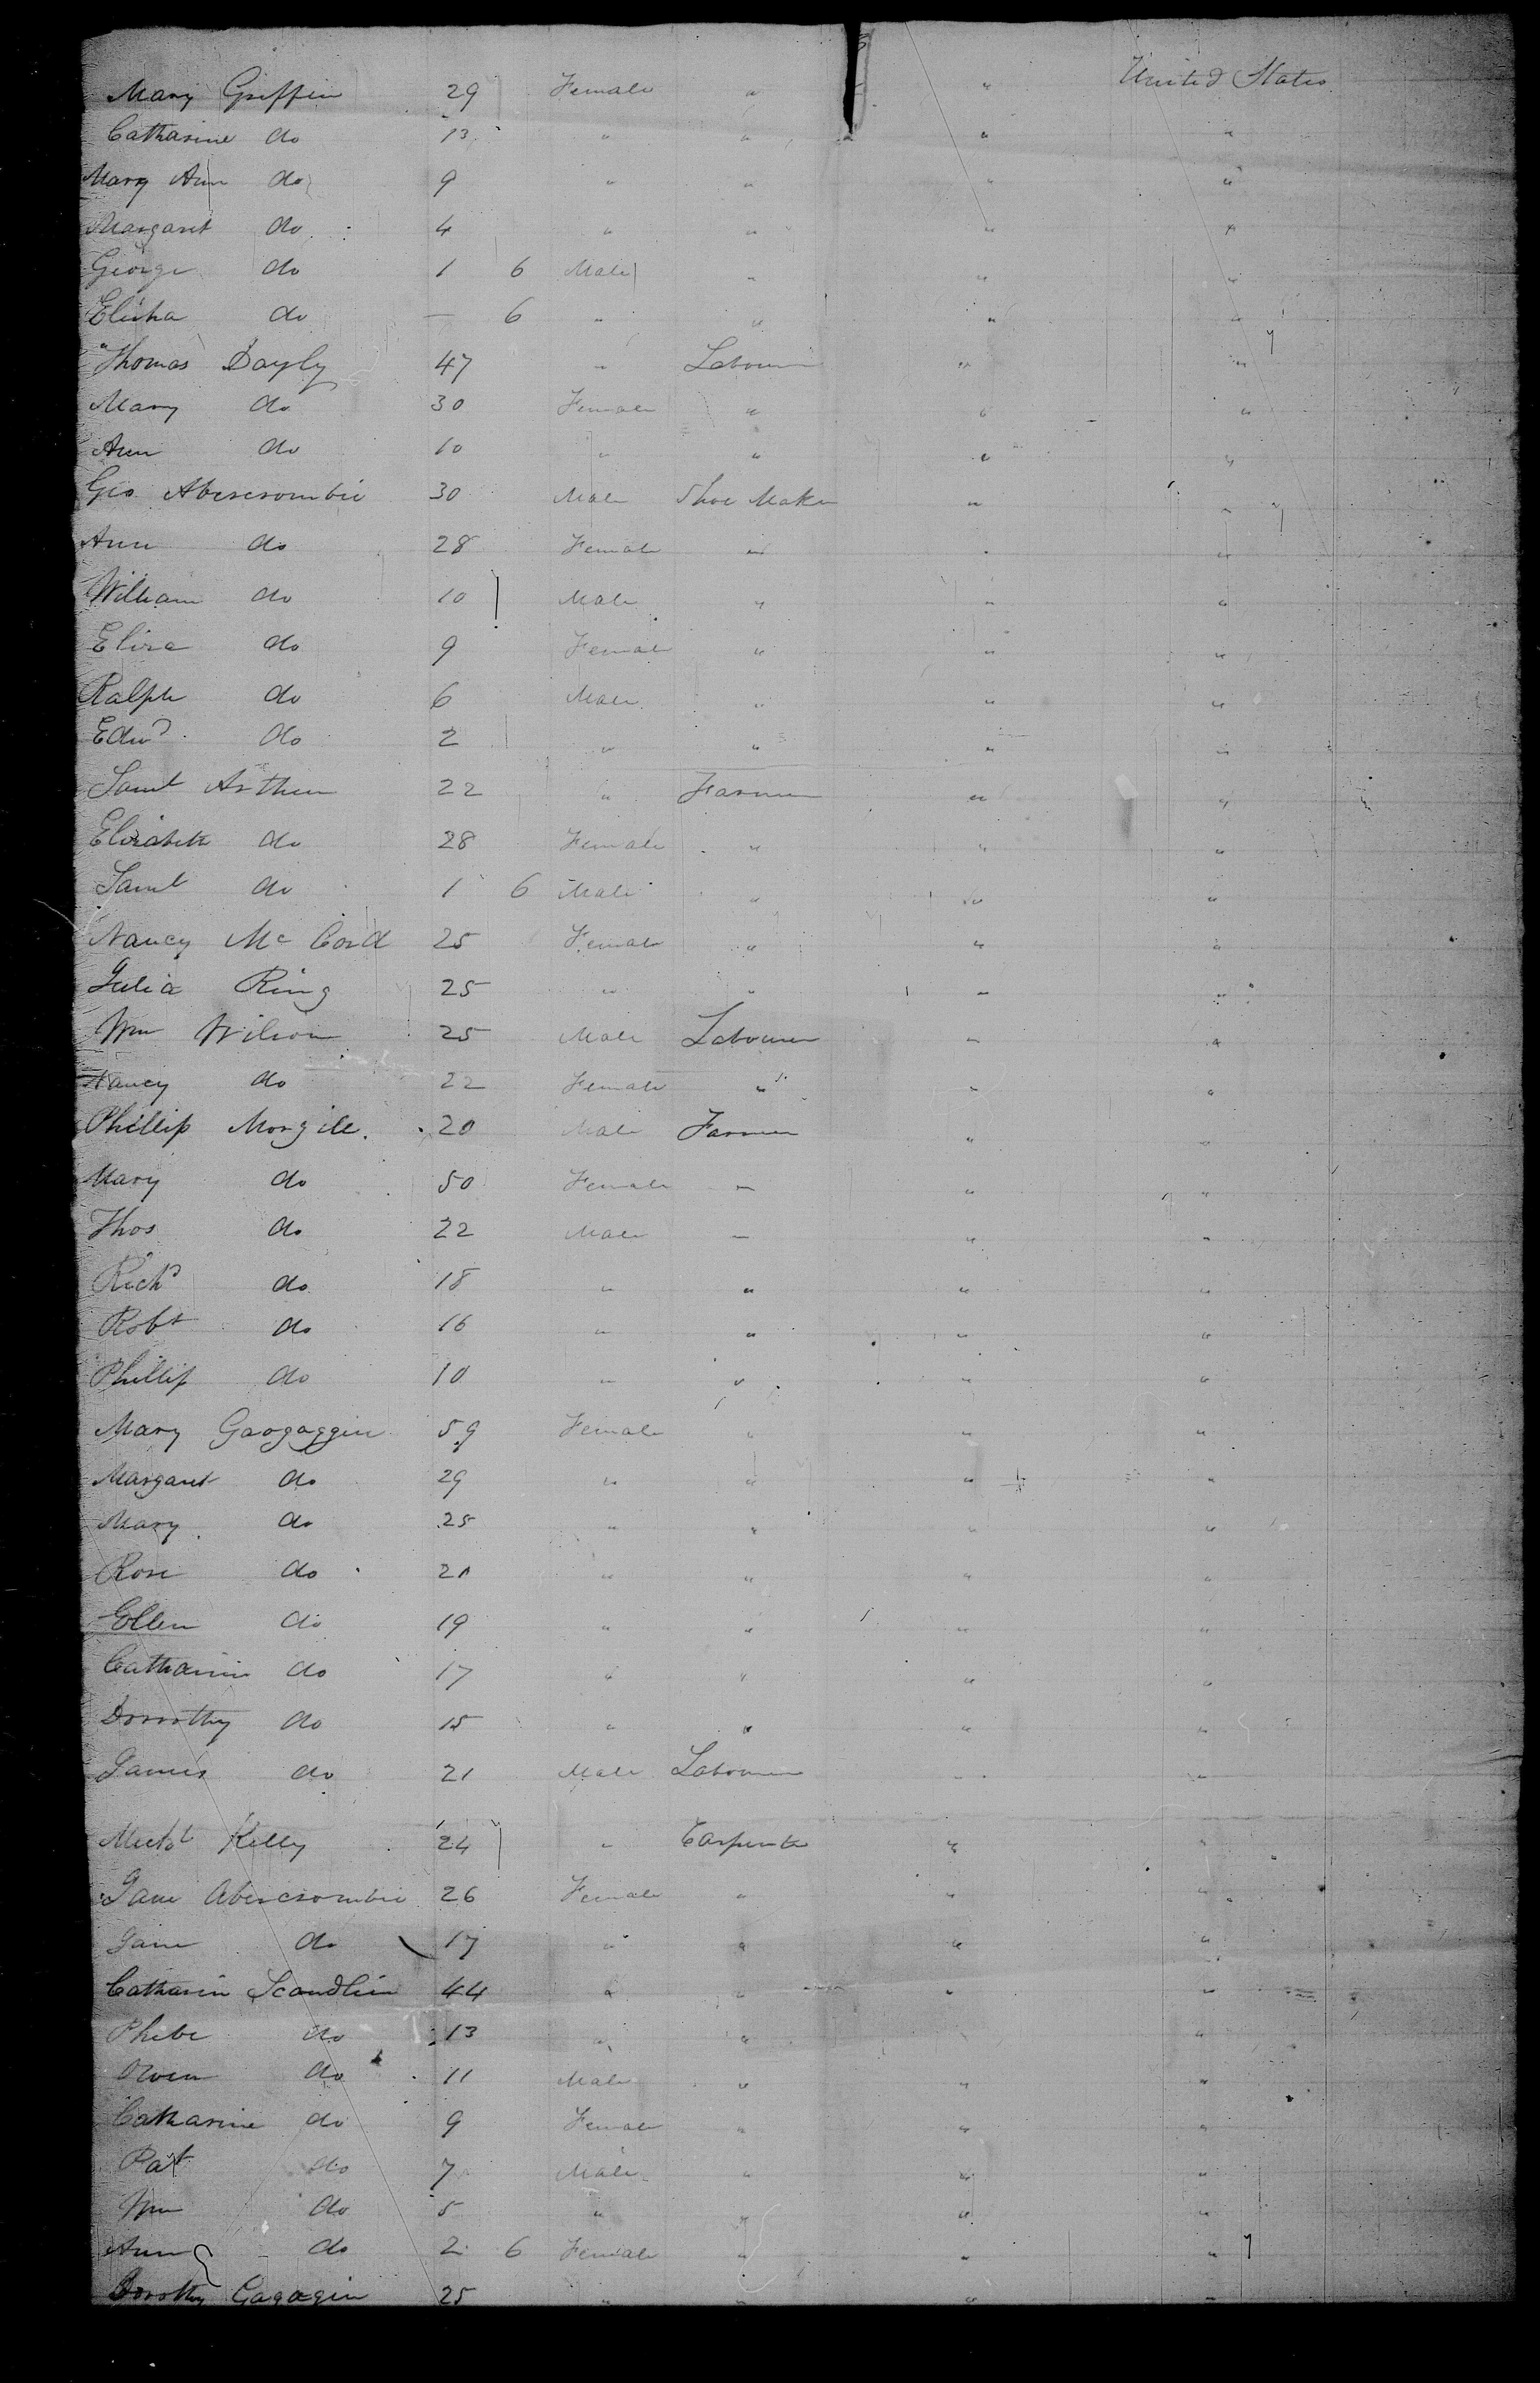 Mary Griffin 29 Female " " United States
Catharine do 13 " " " "
Mary Ann do 9 " " " "
Margaret do 4 " " " "
George do 1 6 Male " " "
Elisha do — 6 " " " "
Thomas Dayly 47 " Labourer " "
Mary do 30 Female " " "
Ann do 10 " " " "
Geo Abercrombie 30 Male Shoe Maker " "
Ann do 28 Female " " "
William do 10 Male " " "
Eliza do 9 Female " " "
Ralph do 6 Male " " "
Edwd do 2 " " " "
Saml Arthur 22 " Farmer " "
Elizabeth do 28 Female " " "
Saml do 1 6 Male " " "
Nancy Mc Cord 25 Female " " "
Julia Ring 25 " " " "
Wm Wilson 25 Male Labourer " "
Nancy do 22 Female " " "
Phillip Morgill. 20 Male Farmer " "
Mary do 50 Female " " "
Thos do 22 Male " " "
Richd do 18 " " " "
Robt do 16 " " " "
Phillip do 10 " " " "
Mary Gargaggin 59 Female " " "
Margaret do 29 " " " "
Mary do 25 " " " "
Rose do 21 " " " "
Ellen do 19 " " " "
Catharine do 17 " " " "
Dorothy do 15 " " " "
James do 21 Male Labourer " "
Michl Kelly 24 " Carpenter " "
Jane Abercrombie 26 Female " " "
Jane do 17 " " " "
Catharin Scandlin 44 " " " "
Phebe do 13 " " "
Owen do 11 Male " " "
Catharine do 9 Female " " "
Pat do 7 Male " " "
Wm do 5 " " " "
Ann do 2 6 Female " " "
Dorothy Gagagin 25 " " " "